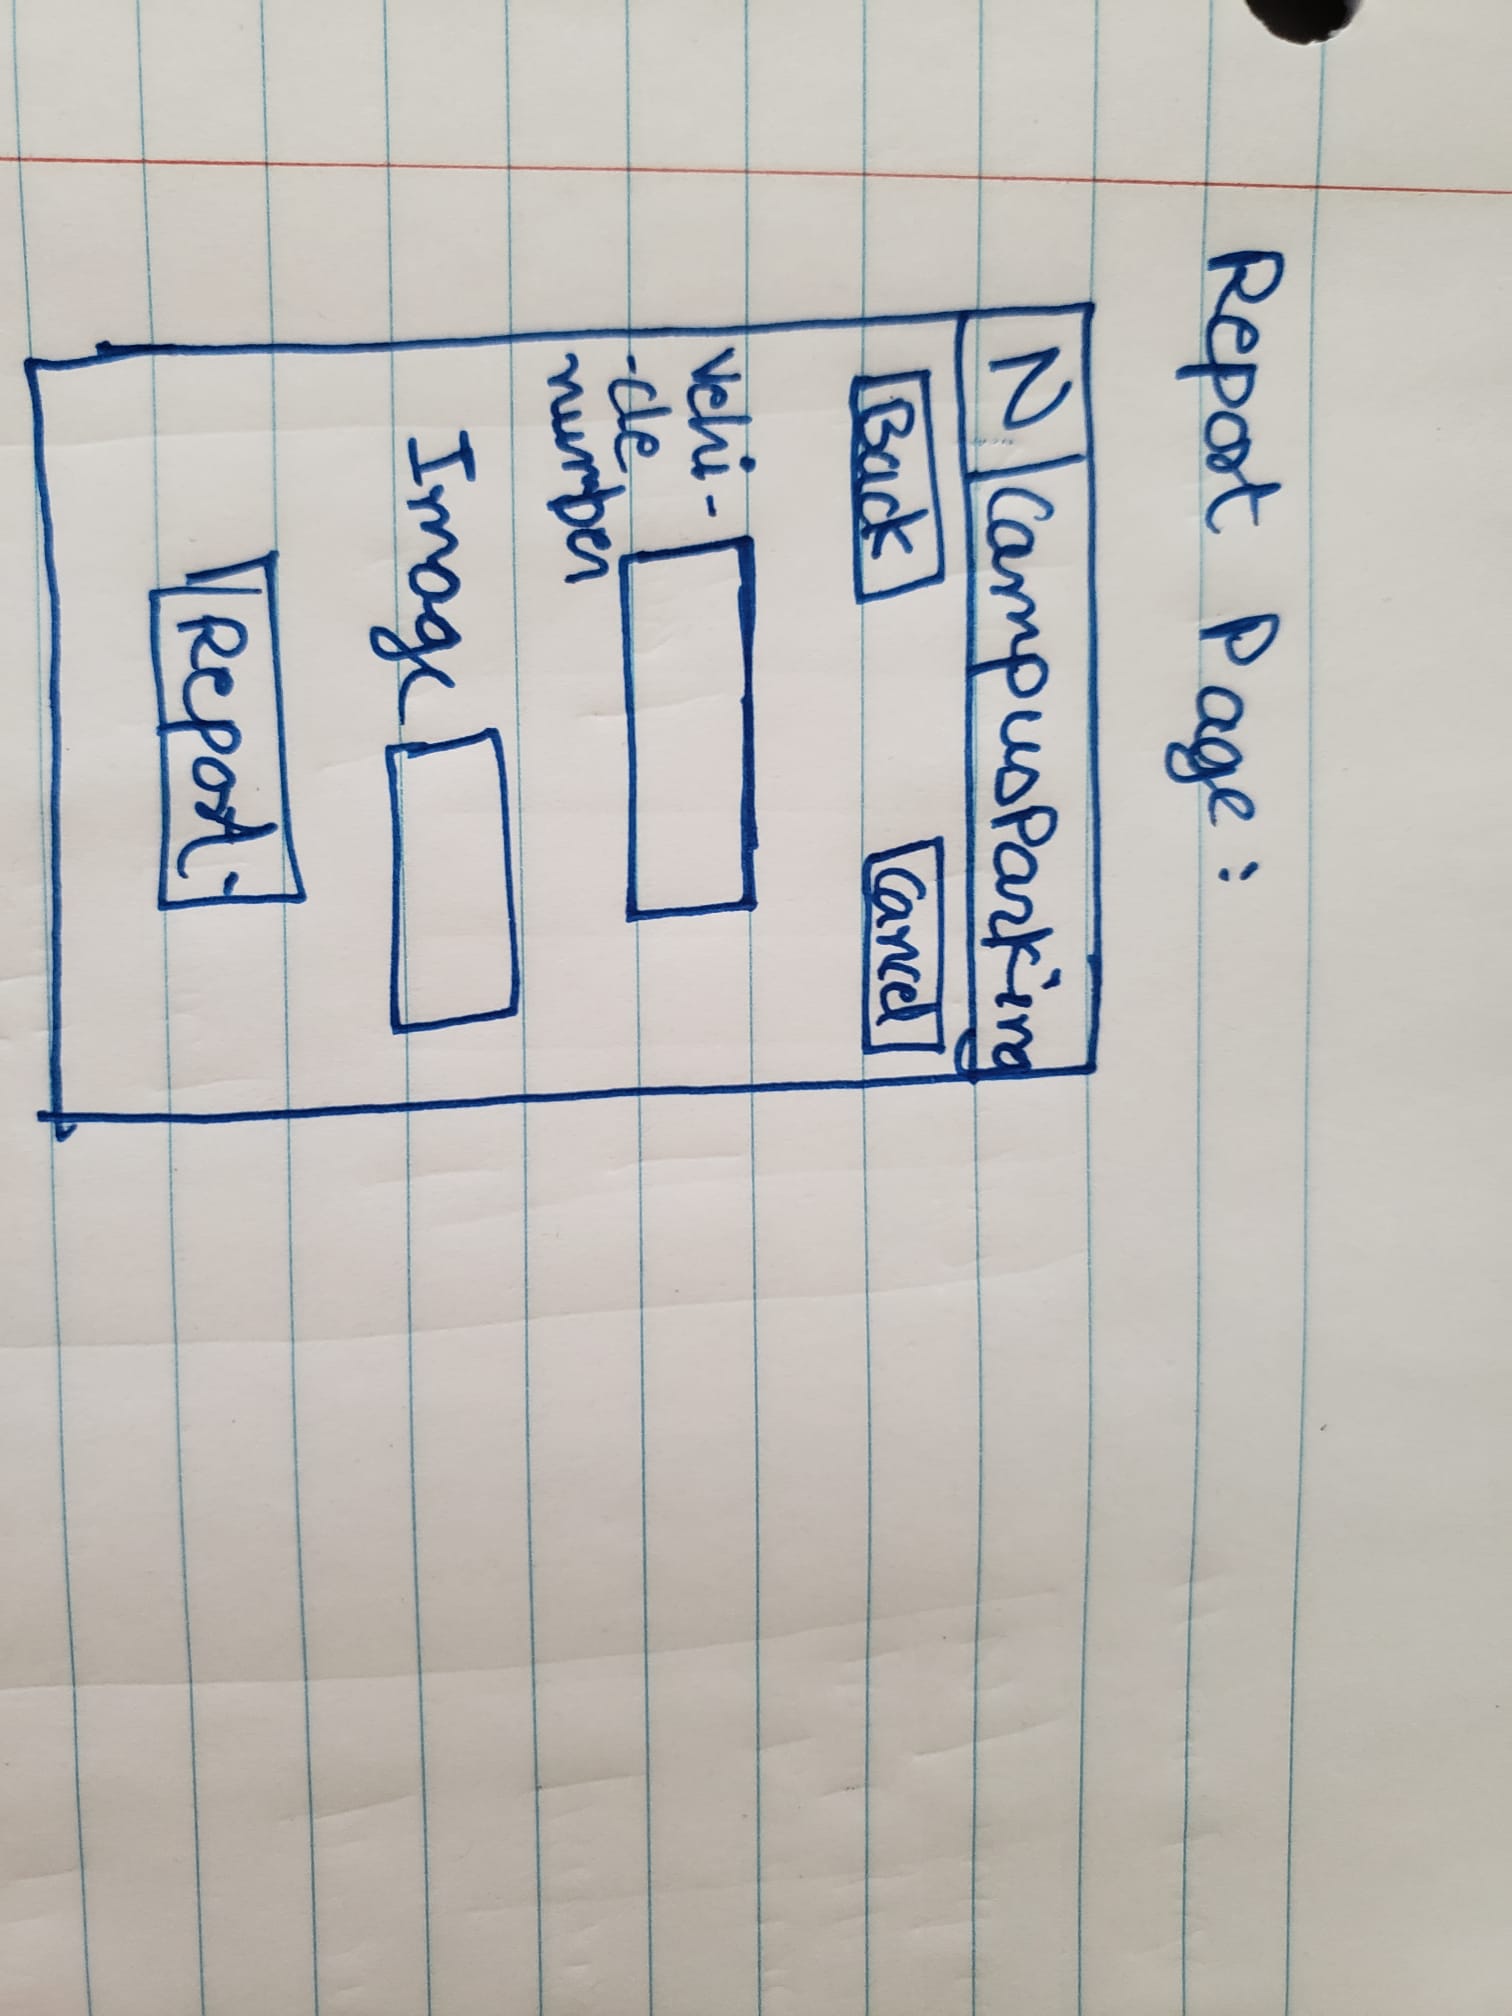 Report Page:
N CampusParking
Back Cancel
Vehi-
-cle
number
Image
Report